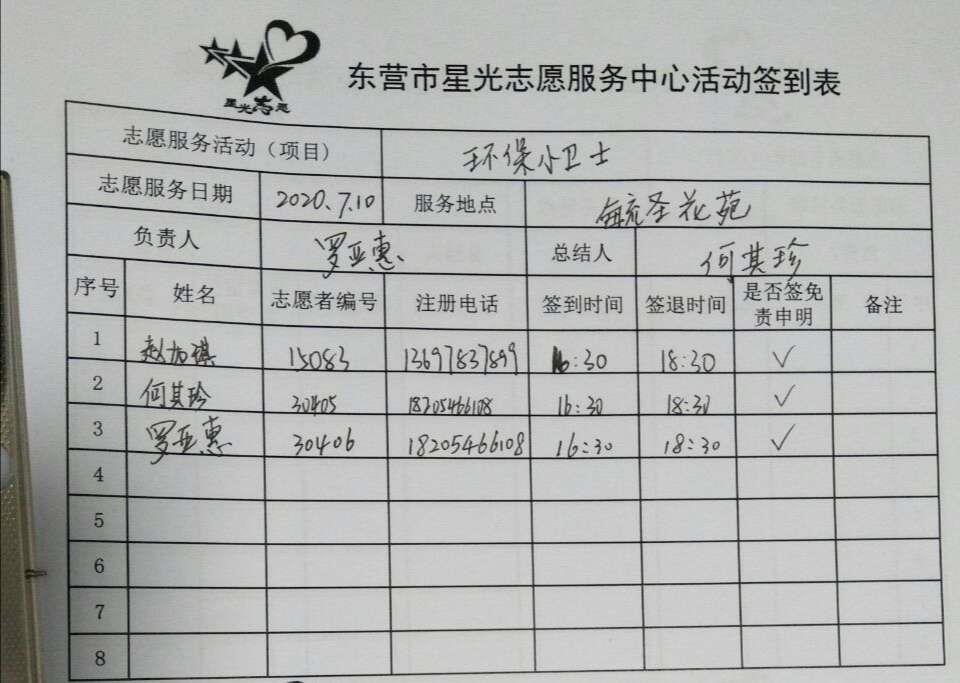 星光志愿
东营市星光志愿服务中心活动签到表
志愿服务活动（项目） 环保小卫士
志愿服务日期 2020.7.10 服务地点 毓圣花苑
负责人 罗亚惠 总结人 何其珍
序号 姓名 志愿者编号 注册电话 签到时间 签退时间 是否签免责申明 备注
1 赵加祺 15083 13697837899 16:30 18:30 ✓
2 何其珍 30405 18205466108 16:30 18:30 ✓
3 罗亚惠 30406 18205466108 16:30 18:30 ✓
4
5
6
7
8